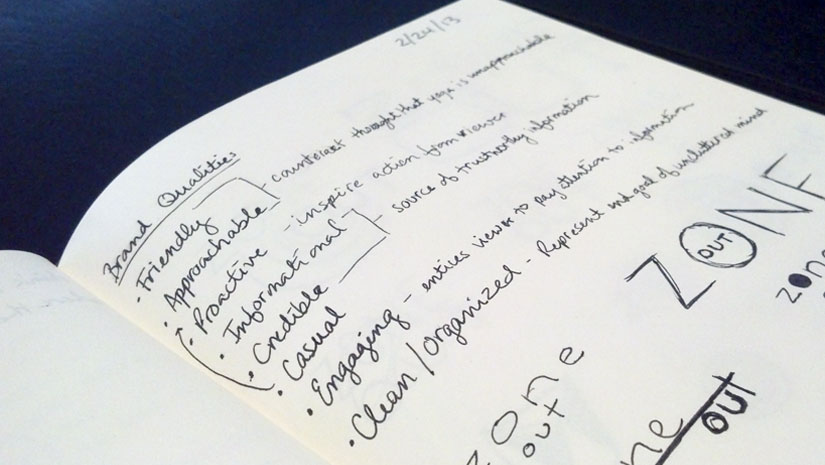 2/24/13
Brand Qualities
• Friendly
• Approachable - counteract thought that yoga is unapproachable
• Proactive - inspire action from viewer
• Informational - source of trustworthy information
• Credible
• Casual
• Engaging - entices viewer to pay attention to information
• Clean/Organized - Represent end goal of uncluttered mind
ZONE
OUT
zone
out
zon
ne
OUT